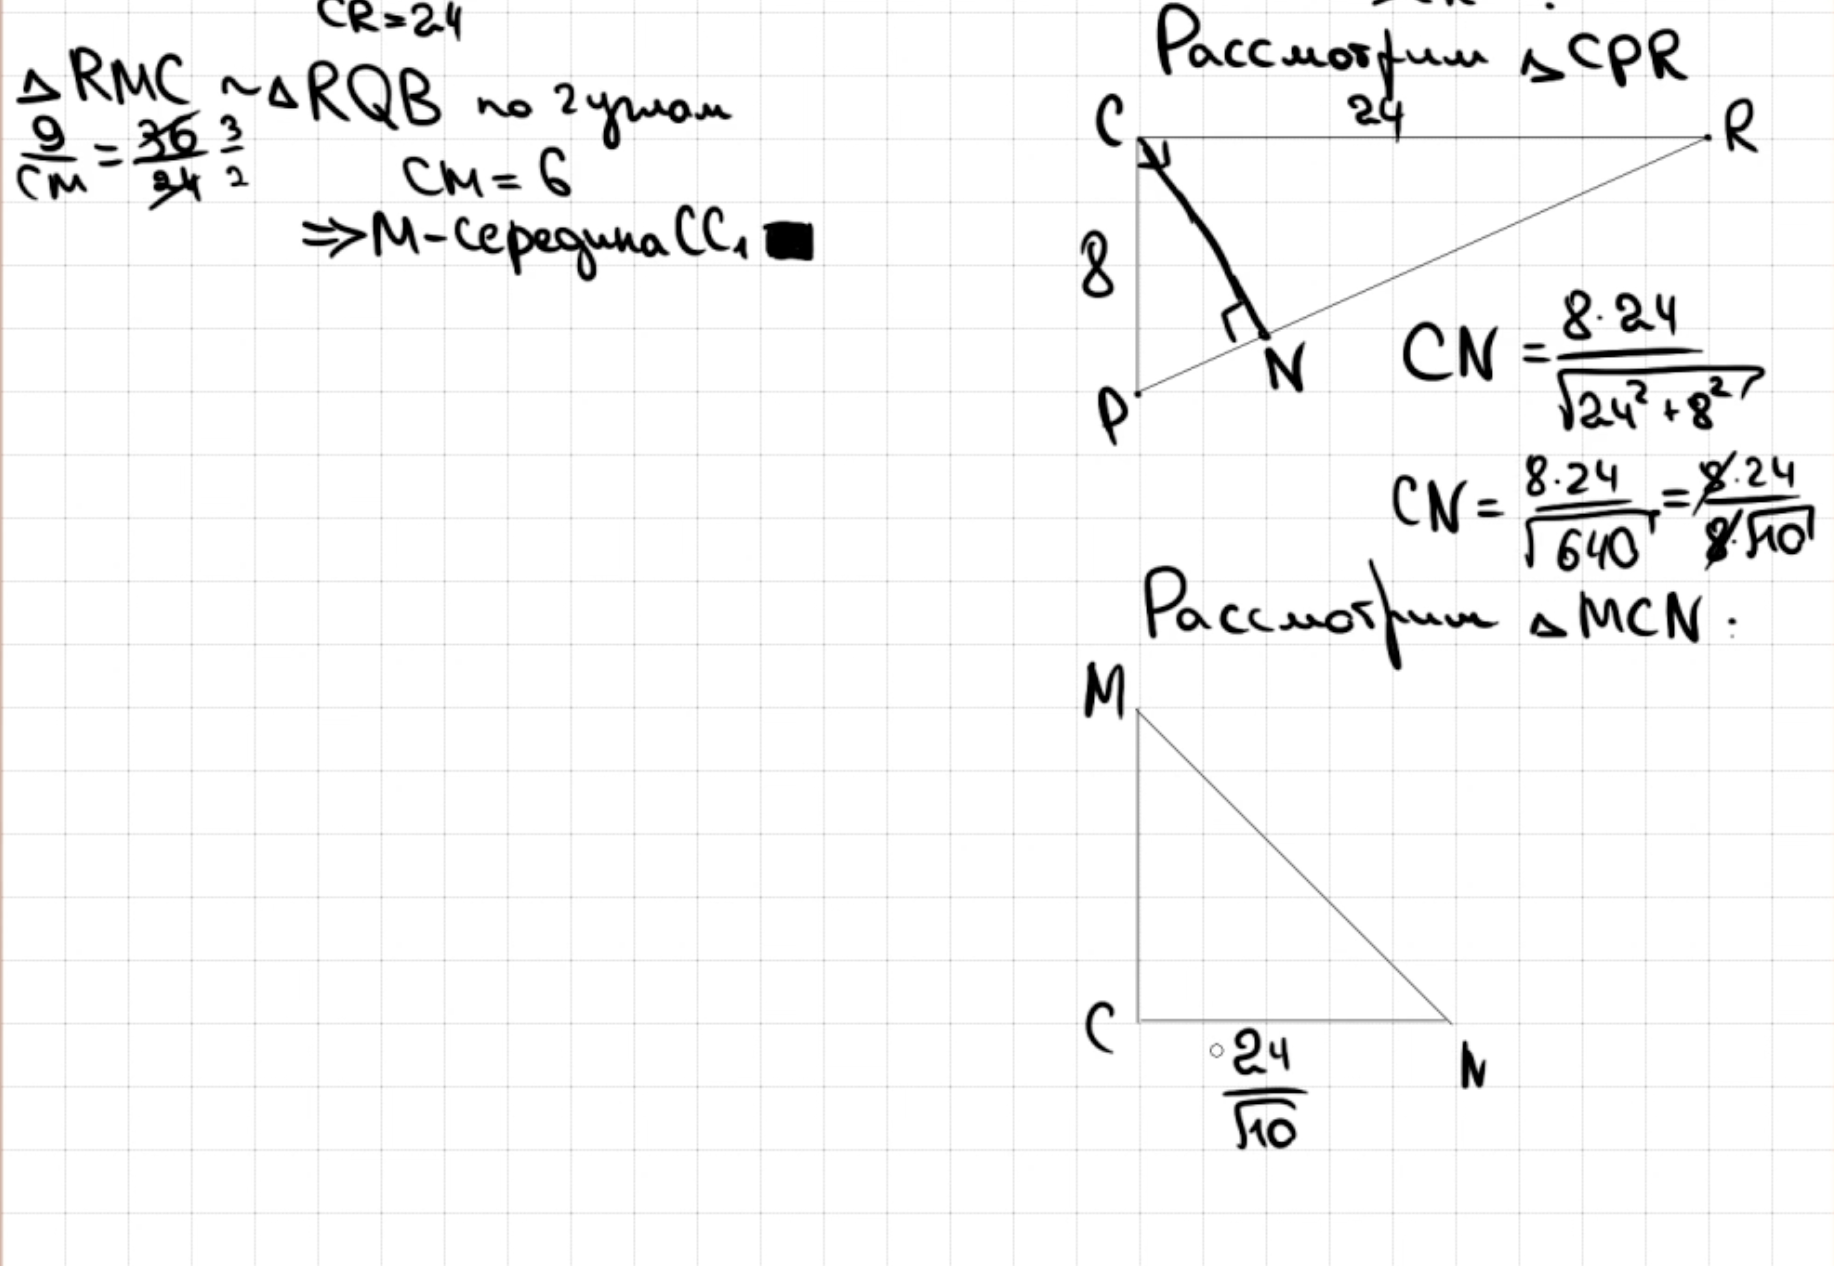 CR=24
△RMC ~ △RQB по 2 углам
9/CM = 36/24 3/2
CM = 6
⇒ M-середина CC₁
Рассмотрим △CPR
C 24 R
8
N
P
CN = 8·24/√(24²+8²)
CN = 8·24/√640 = 8·24/8·√10
Рассмотрим △MCN:
M
C
24/√10
N